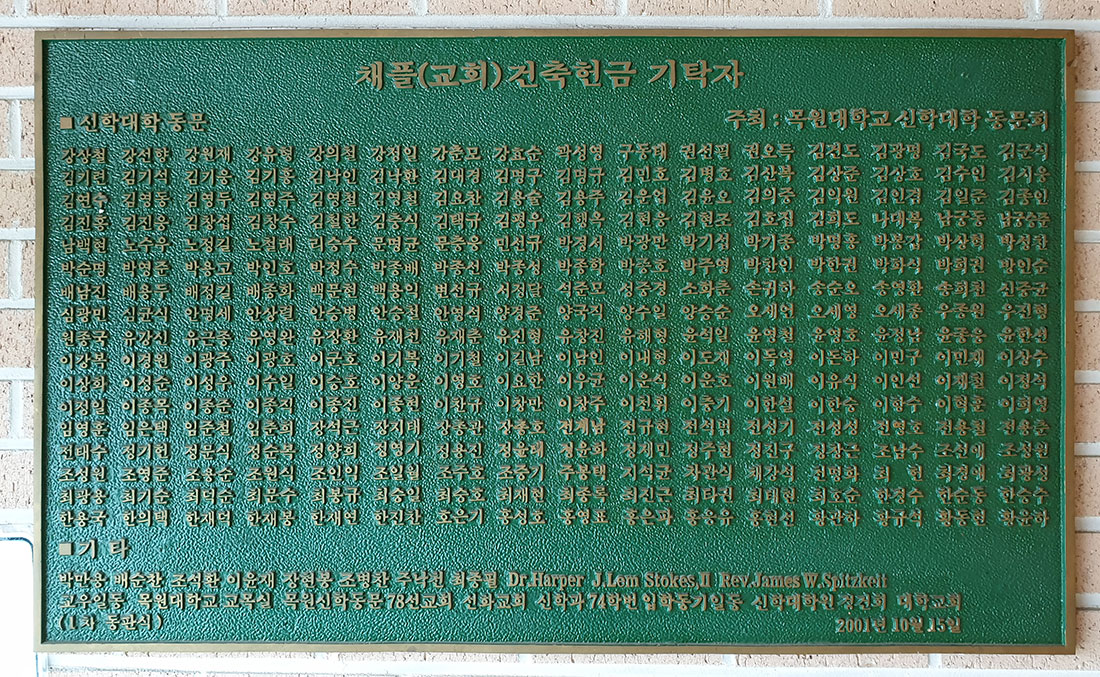 채플(교회)건축헌금 기탁자
■ 신학대학 동문
주최 : 목원대학교 신학대학 동문회
강상철 강선향 강원재 강유형 강의철 강정일 강춘모 강효순 곽성영 구동태 권선필 권오득 김건도 김광명 김국도 김군식
김기련 김기석 김기웅 김기홍 김낙인 김낙환 김대경 김명구 김명규 김민호 김병호 김산복 김상준 김상호 김수인 김시웅
김연수 김영동 김영두 김영주 김영철 김영철 김요한 김용술 김용주 김운업 김윤오 김의중 김익원 김인겸 김일준 김종인
김진흥 김진웅 김창섭 김창수 김철한 김충식 김태규 김평우 김행옥 김현웅 김현조 김호점 김희도 나대복 남궁동 남궁승준
남백현 노수우 노정길 노철래 리승수 문명균 문춘웅 민선규 박경서 박광만 박기설 박기종 박명혹 박봉갑 박상혁 박성환
박순명 박영준 박용고 박인호 박정수 박종배 박종선 박종성 박종학 박종호 박주영 박찬인 박한권 박화식 박희권 방인순
배남진 배용두 배정길 배종화 백문현 백용익 변선규 서정달 석준모 성중경 소화춘 손귀하 송순오 송영환 송희원 신중균
심광민 심균식 안병세 안상렬 안승병 안승철 안영석 양경준 양국직 양수일 양승순 오세언 오세영 오세종 우종원 우진형
원종국 유강신 유근종 유영완 유장환 유재천 유재춘 유진형 유창진 유해형 윤석일 윤영철 윤영호 윤정남 윤종웅 윤한선
이강복 이경원 이광주 이광호 이군호 이기복 이기철 이길남 이남인 이내현 이도재 이득영 이돈하 이민구 이민재 이상수
이상화 이성순 이성우 이수일 이승호 이양운 이영호 이요한 이우균 이운식 이윤호 이원배 이유식 이인선 이재철 이정석
이정일 이종목 이종준 이종직 이종진 이종현 이찬규 이창만 이창주 이천휘 이충기 이한설 이한승 이항수 이혁훈 이희영
임영훈 임운택 임준철 임춘희 장석근 장지태 장종관 장종호 전계남 전규현 전석범 전성기 전성성 전영호 전용철 전용준
전태수 정기헌 정무식 정순복 정양희 정영기 정용진 정율래 정윤화 정재민 정주현 정진구 정창근 조남수 조선애 조성원
조성원 조영준 조용순 조원식 조인일 조일원 조주호 조중기 주봉택 지석균 차관식 채강석 천명화 최 헌 최경애 최광성
최광용 최기순 최덕순 최문수 최봉규 최승일 최승호 최재현 최종록 최진근 최타진 최태현 최호순 한경수 한순동 한승수
한용국 한의택 한재덕 한재봉 한재연 한진찬 호은기 홍성호 홍영표 홍은파 홍응유 홍현선 황관하 황규석 황동현 황윤하
■ 기 타
박만용 배순찬 조석환 이윤재 장현봉 조명찬 주낙천 최종필 Dr.Harper J.Lem Stokes,II Rev.James W.Spitzkeit
교우일동 목원대학교 교목실 목원신학동문78선교회 선화교회 신학과74학번 입학동기일동 신학대학원 경건회 대학교회
(1차 동판식)
2001년 10월 15일